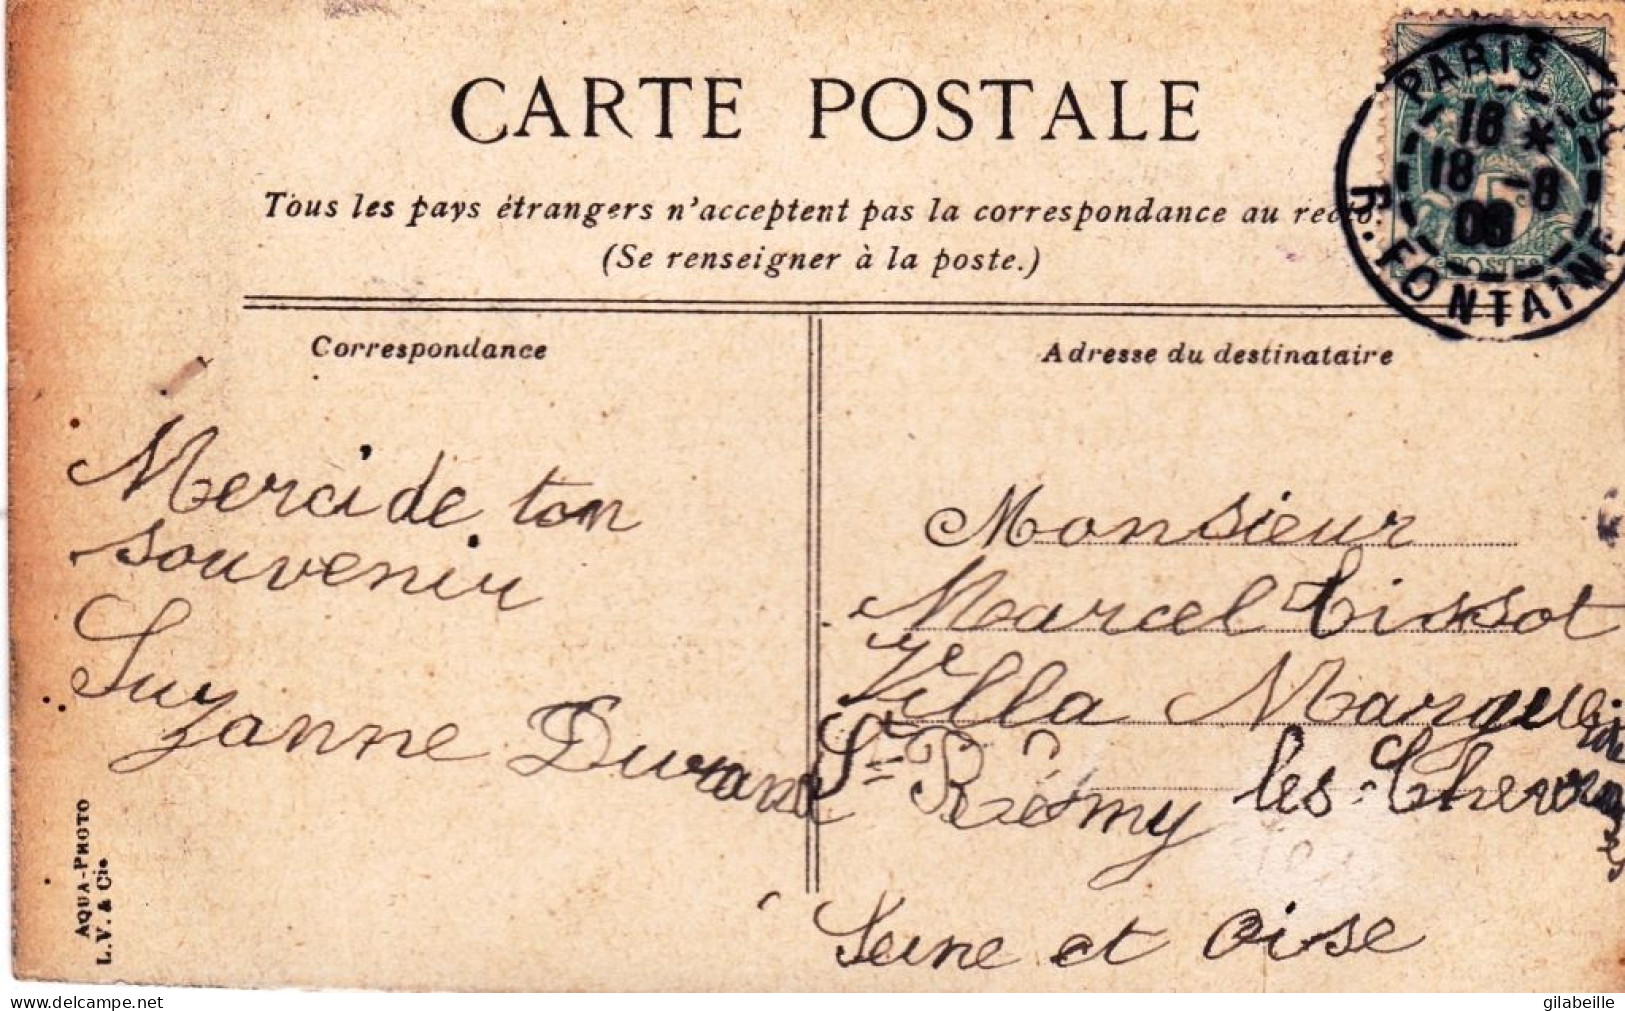 CARTE POSTALE
Tous les pays étrangers n'acceptent pas la correspondance au recto.
(Se renseigner à la poste.)
PARIS
16 *
18 -8
06
R. FONTAINE
5
POSTES
Correspondance
Merci de ton
souvenir
Suzanne Durand
AQUA-PHOTO
L.V. & Cie
Adresse du destinataire
Monsieur
Marcel Tissot
Villa Marguerite
St Rémy les Chevreuses
Seine et Oise
gilabeille